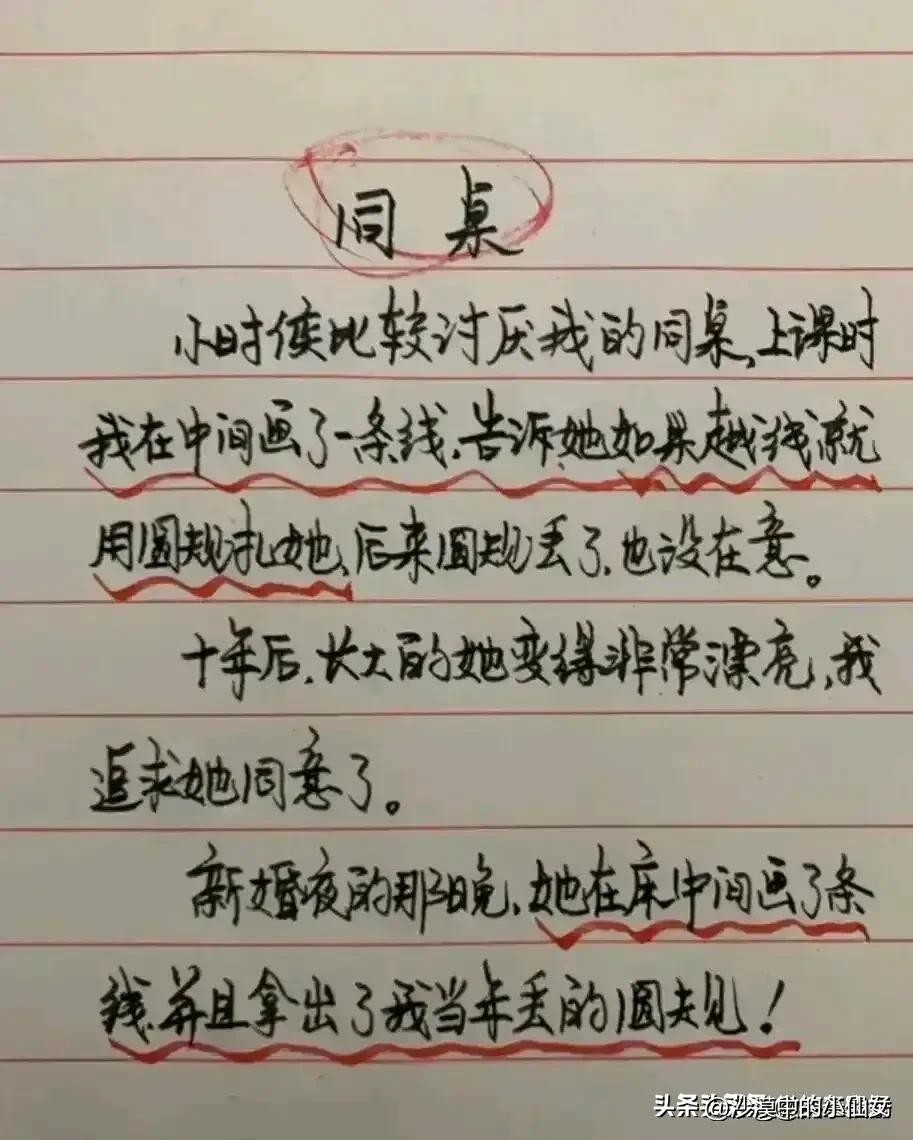 同桌
小时候比较讨厌我的同桌,上课时
我在中间画了一条线,告诉她如果越线就
用圆规扎她,后来圆规丢了,也没在意。
十年后,长大后的她变得非常漂亮,我
追求她同意了。
新婚夜的那晚,她在床中间画了条
线,并且拿出了我当年丢的圆规!
头条
的小仙女